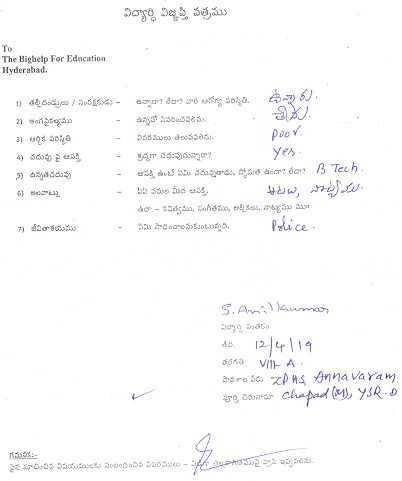 విద్యార్థి విజ్ఞప్తి పత్రము
To
The Bighelp For Education
Hyderabad.
1) తల్లిదండ్రులు / సంరక్షకుడు – ఉన్నారా? లేదా? వారి ఆరోగ్య పరిస్థితి. ఉన్నారు.
2) అంగవైకల్యము – ఉన్నదో వివరించవలెను. లేదు.
3) ఆర్థిక పరిస్థితి – వివరములు తెలుపవలెను. poor.
4) చదువు పై ఆసక్తి – శ్రద్ధగా చదువుచున్నారా? Yes.
5) ఉన్నతచదువు – ఆసక్తి ఉంటే ఏమి చదువుతాడు, స్తోమత ఉందా? లేదా? B.Tech.
6) అలవాట్లు – ఏఏ పనుల మీద ఆసక్తి. ఆటలు,
ఉదా – కవిత్వము, సంగీతము, అల్లికలు, నాట్యము మొ॥
7) జీవితాశయము – ఏమి సాధించాలనుకుంటున్నది. Police.
S. Anil kumar
విద్యార్థి సంతకం
తేది. 12/4/19
తరగతి VIII- A.
పాఠశాల పేరు ZPHS, Annavaram
పూర్తి చిరునామా Chapad (M), YSR. D
గమనిక:-
పైన సూచించిన విషయములకు సంబంధించిన వివరములు – విడిగా తెల్లకాగితముపై వ్రాసి ఇవ్వవలెను.